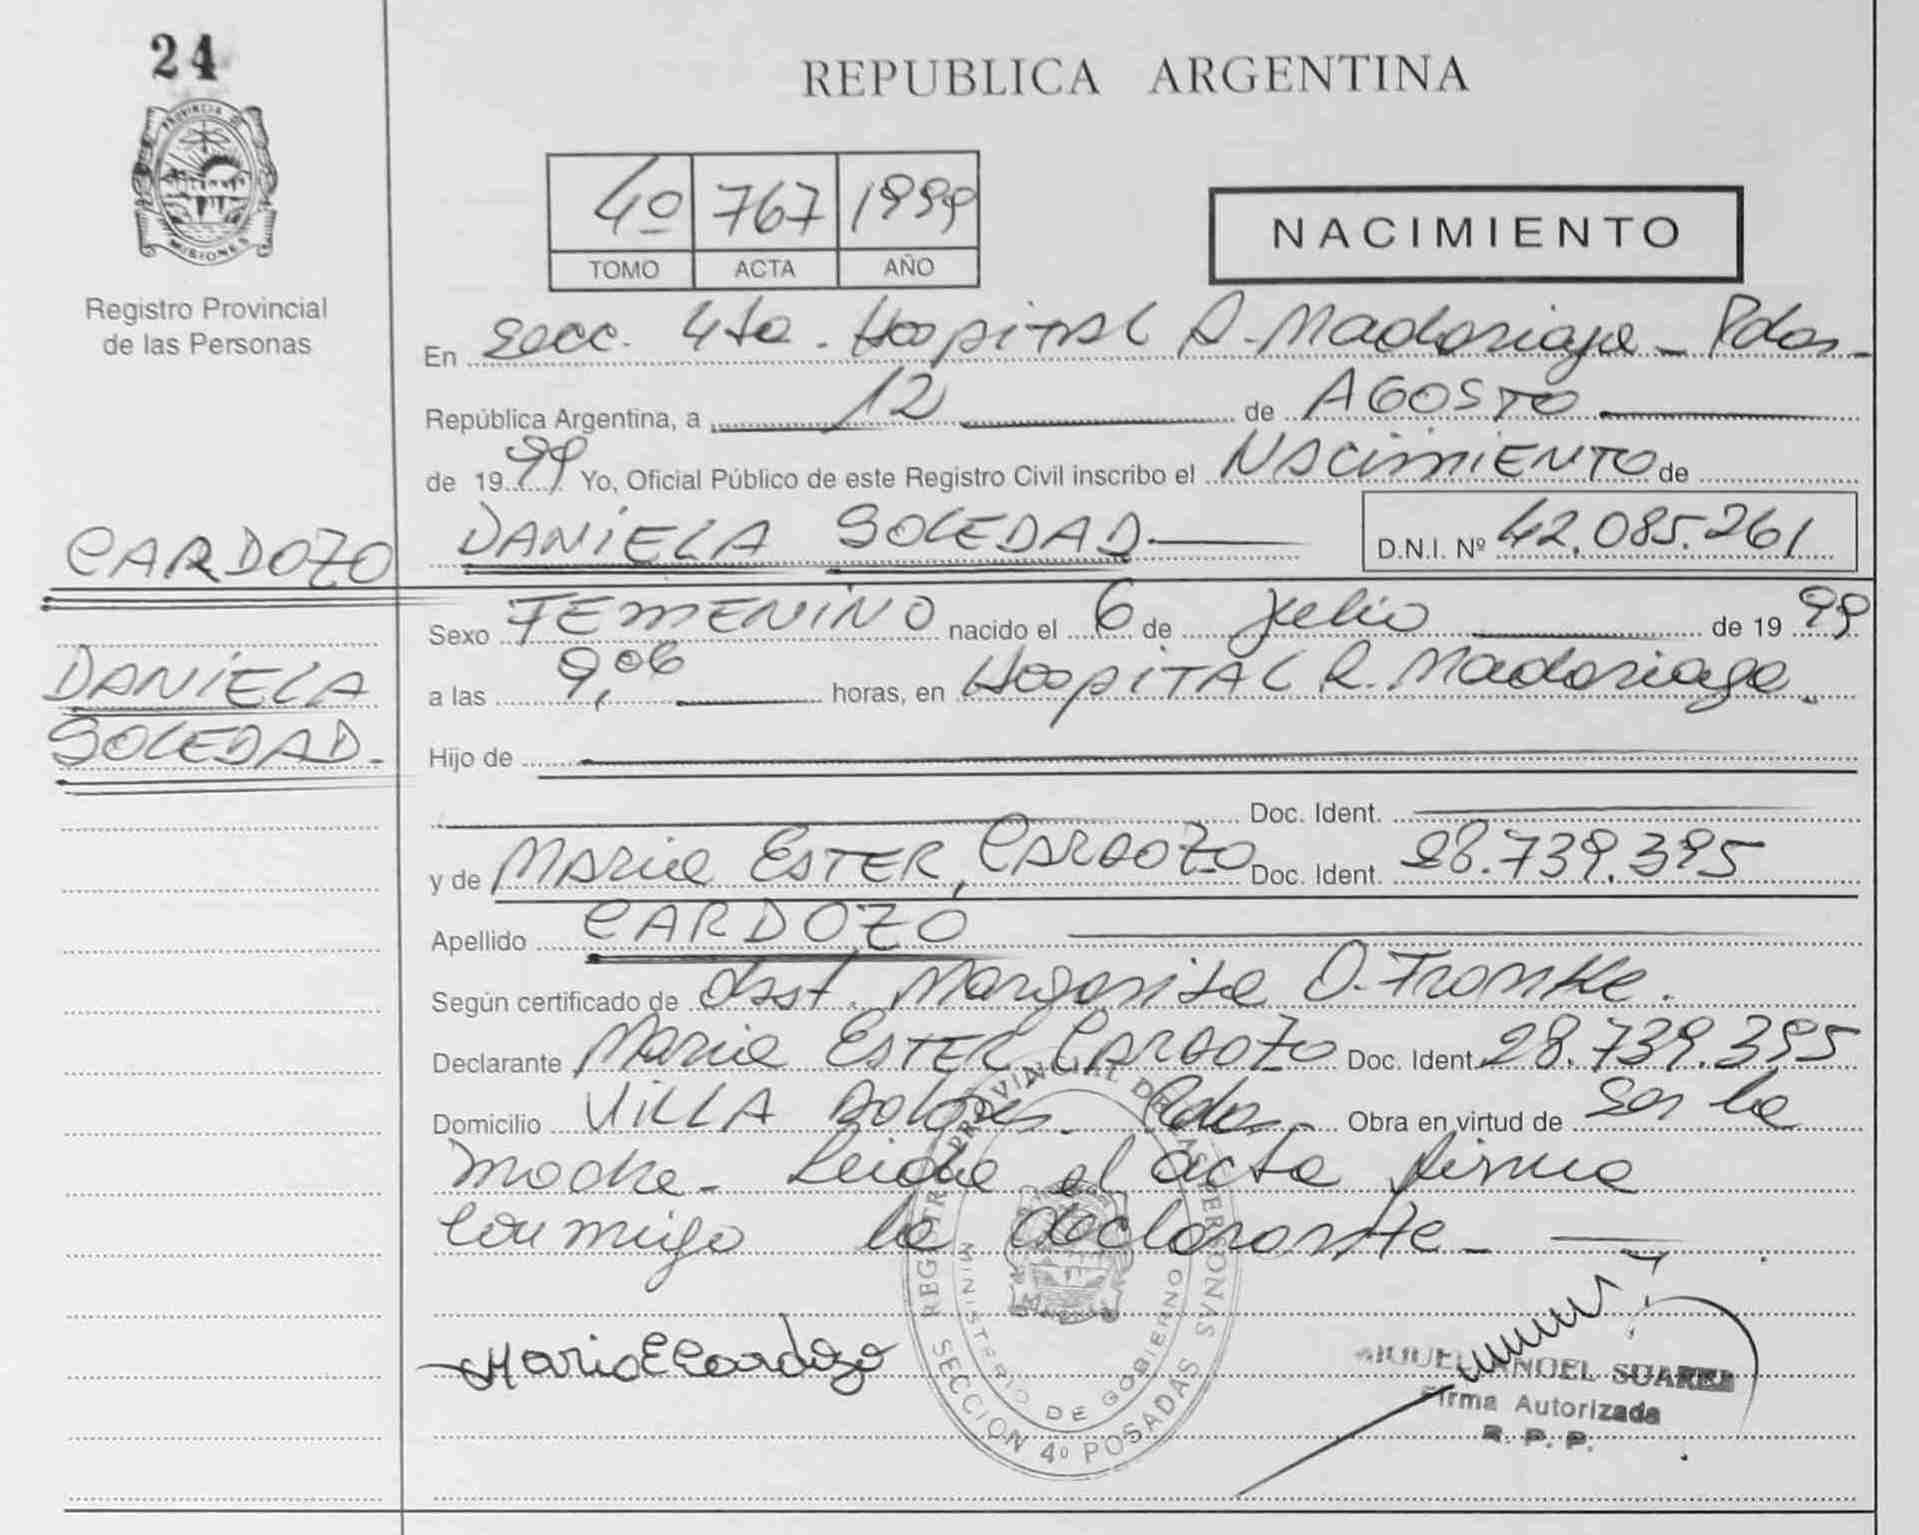 24
PROVINCIA DE
MISIONES
Registro Provincial
de las Personas
REPUBLICA ARGENTINA
4º 767 1999
TOMO ACTA AÑO
NACIMIENTO
En Secc. 4ta. Hospital R. Madariaga - Pdas -
República Argentina, a 12 de AGOSTO
de 1999 Yo, Oficial Público de este Registro Civil inscribo el NACIMIENTO de
CARDOZO DANIELA SOLEDAD D.N.I. Nº 42.085.261
Sexo FEMENINO nacido el 6 de Julio de 1999
DANIELA
SOLEDAD.-
a las 9,06 horas, en Hospital R. Madariaga.
Hijo de
Doc. Ident.
y de Maria ESTER, CARDOZO Doc. Ident. 28.739.395
Apellido CARDOZO
Según certificado de Obst. Margarita O.
Declarante Maria ESTER CARDOZO Doc. Ident. 28.739.395
Domicilio VILLA Dolores - Pdas - Obra en virtud de Ser la
Madre - Leida el acta firma
Conmigo la declarante -
REGISTRO PROVINCIAL DE LAS PERSONAS
MINISTERIO DE GOBIERNO
SECCION 4º POSADAS
Maria E Cardozo
MIGUEL ANGEL SUAREZ
Firma Autorizada
R. P. P.